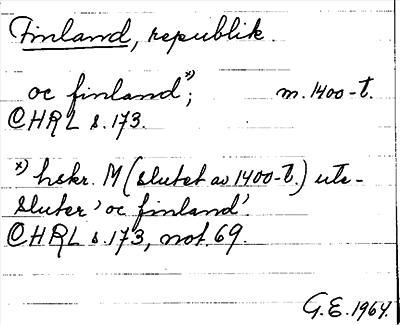 Finland, republik.
oc finland x); m. 1400-t.
CHRL s. 173.
x) hskr. M (slutet av 1400-t.) ute-
sluter 'oc finland'.
CHRL s. 173, not. 69.
G.E. 1964.